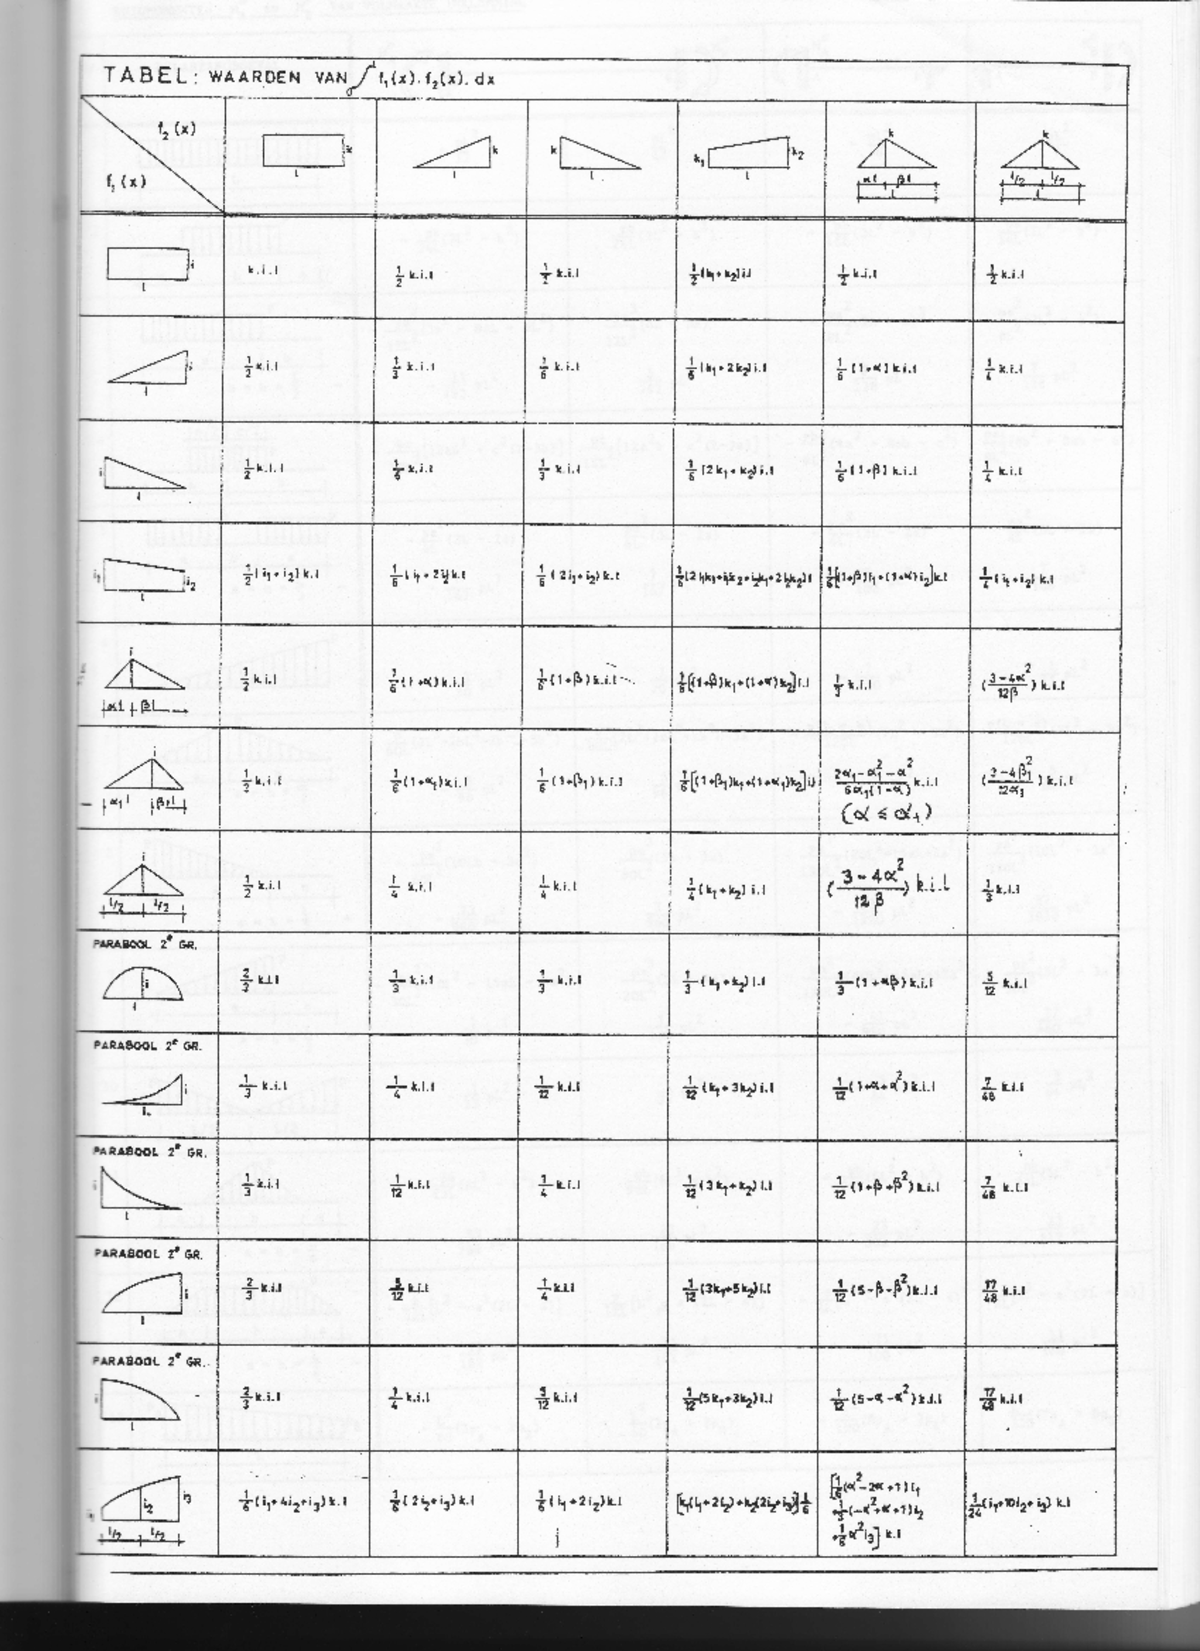 TABEL: WAARDEN VAN ∫ f₁(x). f₂(x). dx
f₂(x)
f₁(x)
k l
k l
k l
k₁ k₂ l
k αl βl l
k l/2 l/2 l
i l
k.i.l
1/2 k.i.l
1/2 k.i.l
1/2 (k₁+k₂) i.l
1/2 k.i.l
1/2 k.i.l
i l
1/2 k.i.l
1/3 k.i.l
1/6 k.i.l
1/6 (k₁+2k₂) i.l
1/6 (1+α) k.i.l
1/4 k.i.l
i l
1/2 k.i.l
1/6 k.i.l
1/3 k.i.l
1/6 (2k₁+k₂) i.l
1/6 (1+β) k.i.l
1/4 k.i.l
i₁ i₂ l
1/2 (i₁+i₂) k.l
1/6 (i₁+2i₂) k.l
1/6 (2i₁+i₂) k.l
1/6 (2i₁k₁+i₁k₂+i₂k₁+2i₂k₂) l
1/6 [(1+β)i₁+(1+α)i₂] k.l
1/4 (i₁+i₂) k.l
i αl βl
1/2 k.i.l
1/6 (1+α) k.i.l
1/6 (1+β) k.i.l
1/6 [(1+β)k₁+(1+α)k₂] i.l
1/3 k.i.l
(3-4α²/12β) k.i.l
i α₁l β₁l
1/2 k.i.l
1/6 (1+α₁) k.i.l
1/6 (1+β₁) k.i.l
1/6 [(1+β₁)k₁+(1+α₁)k₂] i.l
2α₁-α₁²-α²/6α₁(1-α) k.i.l
(α ≤ α₁)
(3-4β₁²/12α₁) k.i.l
i l/2 l/2
1/2 k.i.l
1/4 k.i.l
1/4 k.i.l
1/4 (k₁+k₂) i.l
(3-4α²/12β) k.i.l
1/3 k.i.l
PARABOOL 2ᵉ GR.
i l
2/3 k.i.l
1/3 k.i.l
1/3 k.i.l
1/3 (k₁+k₂) i.l
1/3 (1+αβ) k.i.l
5/12 k.i.l
PARABOOL 2ᵉ GR.
i l
1/3 k.i.l
1/4 k.i.l
1/12 k.i.l
1/12 (k₁+3k₂) i.l
1/12 (1+α+α²) k.i.l
7/48 k.i.l
PARABOOL 2ᵉ GR.
i l
1/3 k.i.l
1/12 k.i.l
1/4 k.i.l
1/12 (3k₁+k₂) i.l
1/12 (1+β+β²) k.i.l
7/48 k.i.l
PARABOOL 2ᵉ GR.
i l
2/3 k.i.l
5/12 k.i.l
1/4 k.i.l
1/12 (3k₁+5k₂) i.l
1/12 (5-β-β²) k.i.l
17/48 k.i.l
PARABOOL 2ᵉ GR.
i l
2/3 k.i.l
1/4 k.i.l
5/12 k.i.l
1/12 (5k₁+3k₂) i.l
1/12 (5-α-α²) k.i.l
17/48 k.i.l
i₁ i₂ i₃ l/2 l/2
1/6 (i₁+4i₂+i₃) k.l
1/6 (2i₂+i₃) k.l
1/6 (i₁+2i₂) k.l
[k₁(i₁+2i₂)+k₂(2i₂+i₃)] l/6
[1/6 (α²-2α+1) i₁
+1/3 (-α²+α+1) i₂
+1/6 α² i₃] k.l
1/24 (i₁+10i₂+i₃) k.l